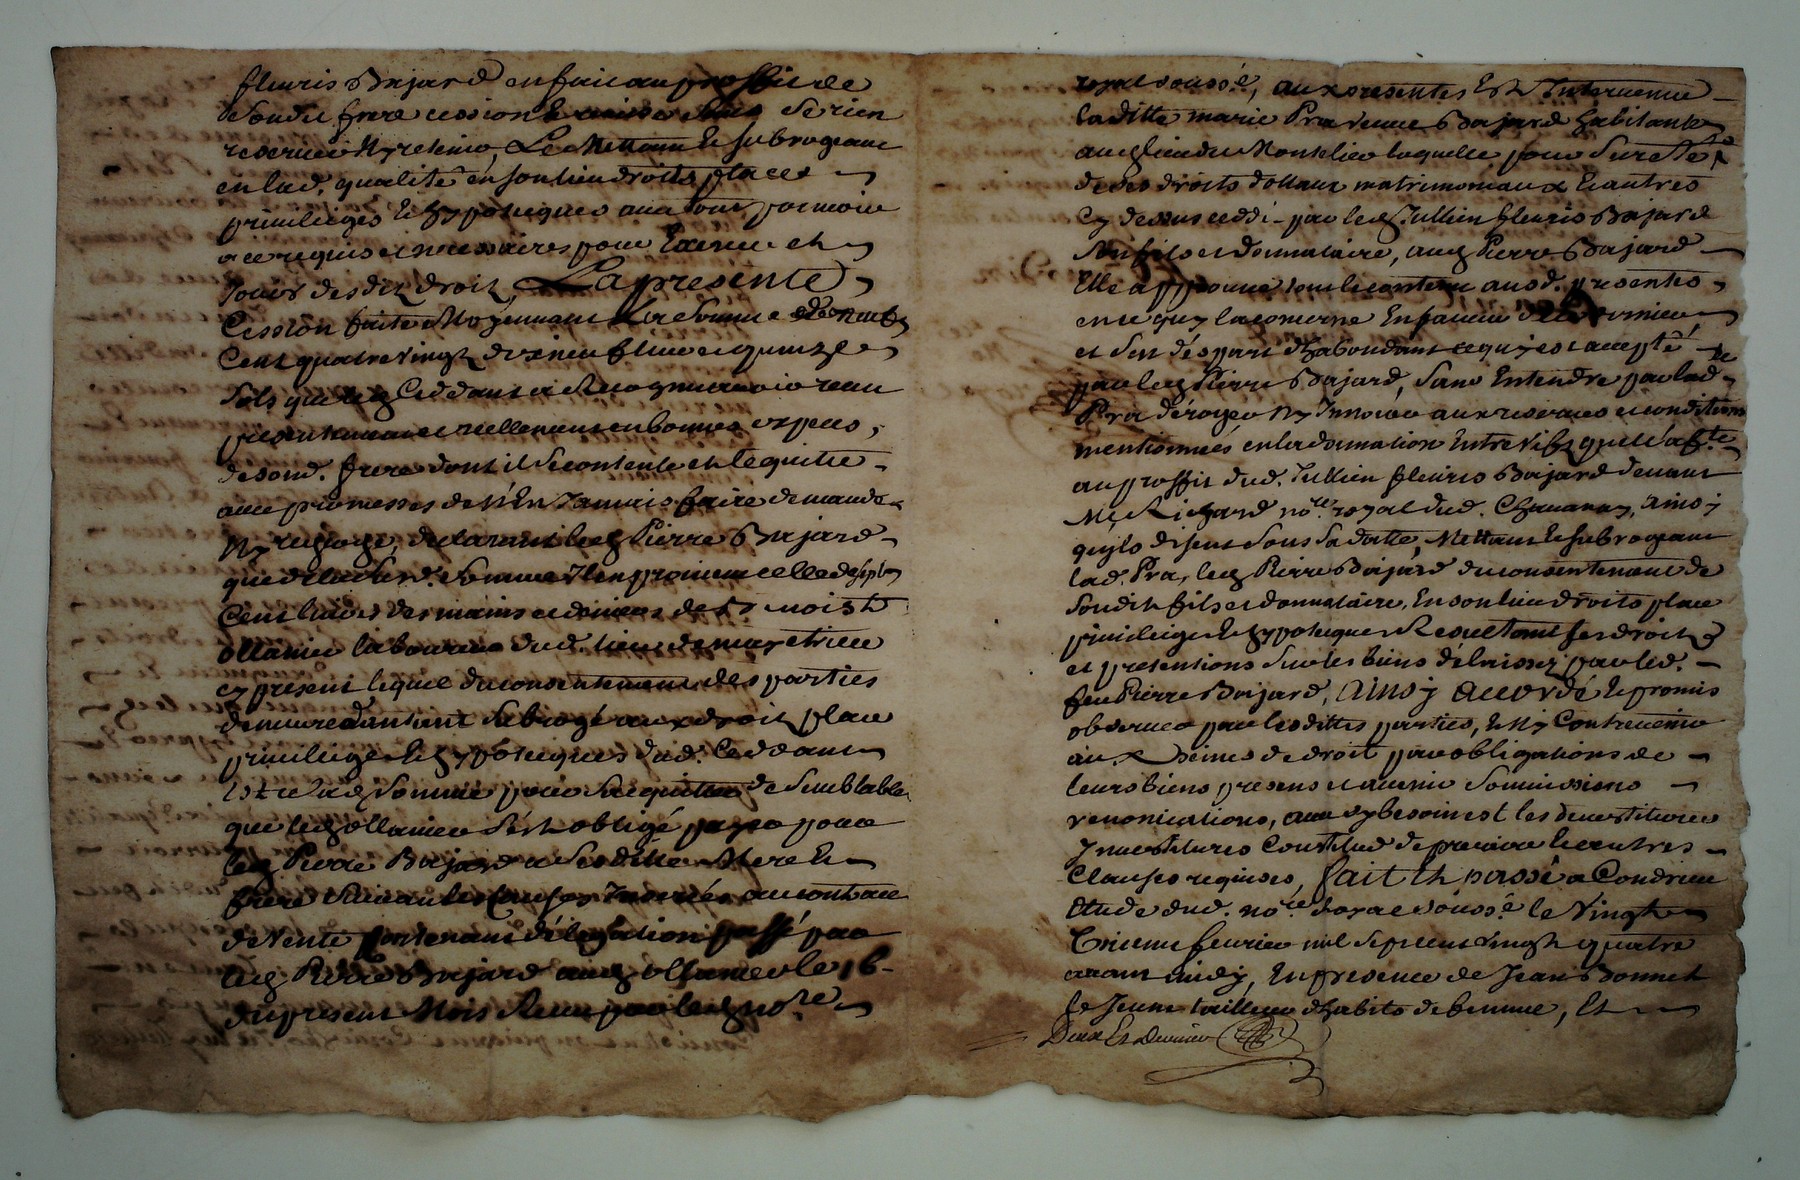 fleuris Bajard en fait au proffit de
Soudit frere cession Serien
reservé Ny retenu, Le Mettant Et subrogeant
en lad. qualité en son lieu droits place
privileiges Et hypoteques avec tout pouvoir
a ce requis et necessaires pour Exercer et
Jouir desdits droits, La presente
Cession faitte Moyennant La Somme de
Cent quatre vingt dix neuf livres quinze
Sols que led Ceddant a Recognu avoir reçu
presentement et reellement en bonnes expeces,
de soud. frere dont il se contente et le quitte
avec promesses de N'En Jamais faire demande
Ny recherche, declarant led Pierre Bajard
que de lad. Somme Il en provient celle de sept
Cent livres des mains et deniers de Sr Benoist
ollanier laboureur dud. lieu de
cy present lequel du consentement des parties
demeure d'autant subrogé aux droits place
privileiges Et hypoteques dud. Ceddant
lad somme pour s'acquitter de semblable
que led ollanier s'est obligé payer pour
led Pierre Bajard a sesditte Mere Et
frere suivant les Clauses Inserées au contract
de Vente portenant délégation passé par
led Pierre Bajard aud ollanier le 16
du present Mois Receu par led no.re
royal souss.é, aux presentes Est Intervenue
laditte marie Pra veuve Bajard habitante
au lieu du Montelier laquelle pour Sureté
de ses droits dottaux matrimoniaux Et autres
Cy dessus ceddé par led Jullien fleuris Bajard
Son fils et donnataire, aud Pierre Bajard
Elle approuve tout le contenu ausd. presentes
en ce quy la concerne En faveur de ce dernier
et s'en départ d'habondant ce quy est accepté
par led Pierre Bajard, Sans Entendre par lad.
Pra déroger Ny Innover aux reserves et conditions
mentionnées en la donnation Entre vifs qu'elle a fte
au proffit dud. Jullien fleuris Bajard devant
Me Richard no.re royal dud. Chavanay, ainsy
quils disent Sous Sa datte, Mettant Et subrogeant
lad. Pra, led Pierre Bajard du consentement de
Sondit fils et donnataire, En son lieu droits place
privileiges Et hypoteques Resultant ses droits
et pretentions sur les biens délaissez par led.
feu Pierre Bajard, ainsy accordé Et promis
observer par lesdittes parties, Et Ny Contrevenir
aux Peines de droit par obligations de
leurs biens presens et avenir Soumissions
renonciations, aux sy besoin est les devestitures
Investitures Constitud de precaire Et autres
Clauses requises, fait Et passé a Condrieu
Etude dud. no.re Royal souss.é le Vingt
Troisieme fevrier mil sept cent vingt quatre
avant midy, En presence de Jean Bonnet
le Jeune tailleur d'habits de femme, Et
Deux Et Dernier